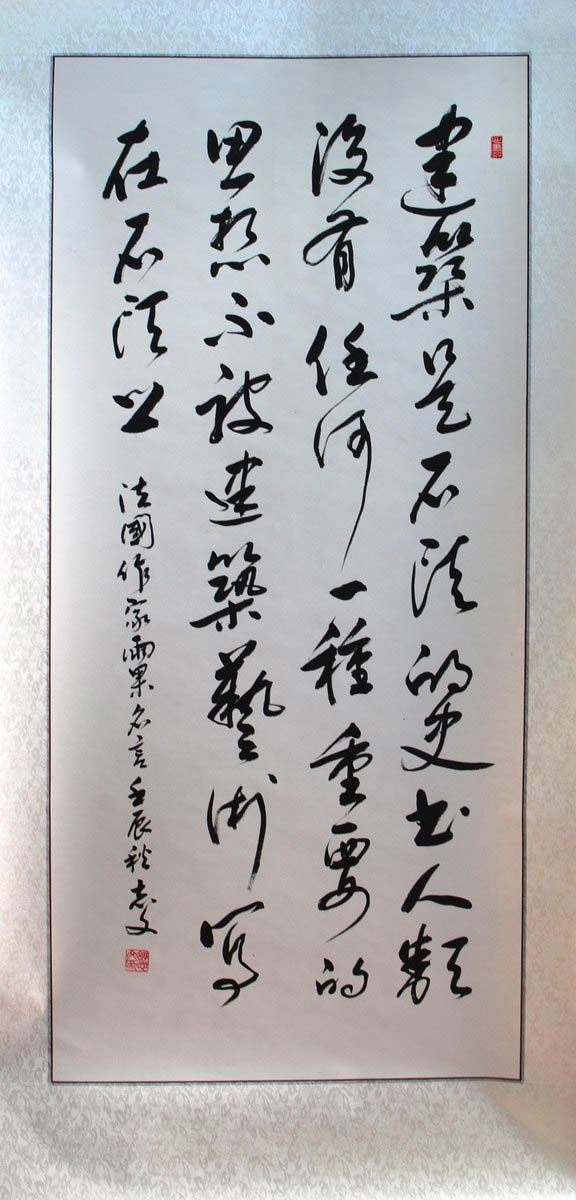 建築是石頭的史書人類
沒有任何一種重要的
思想不被建築藝術寫
在石頭上
法國作家雨果名言壬辰秋志文